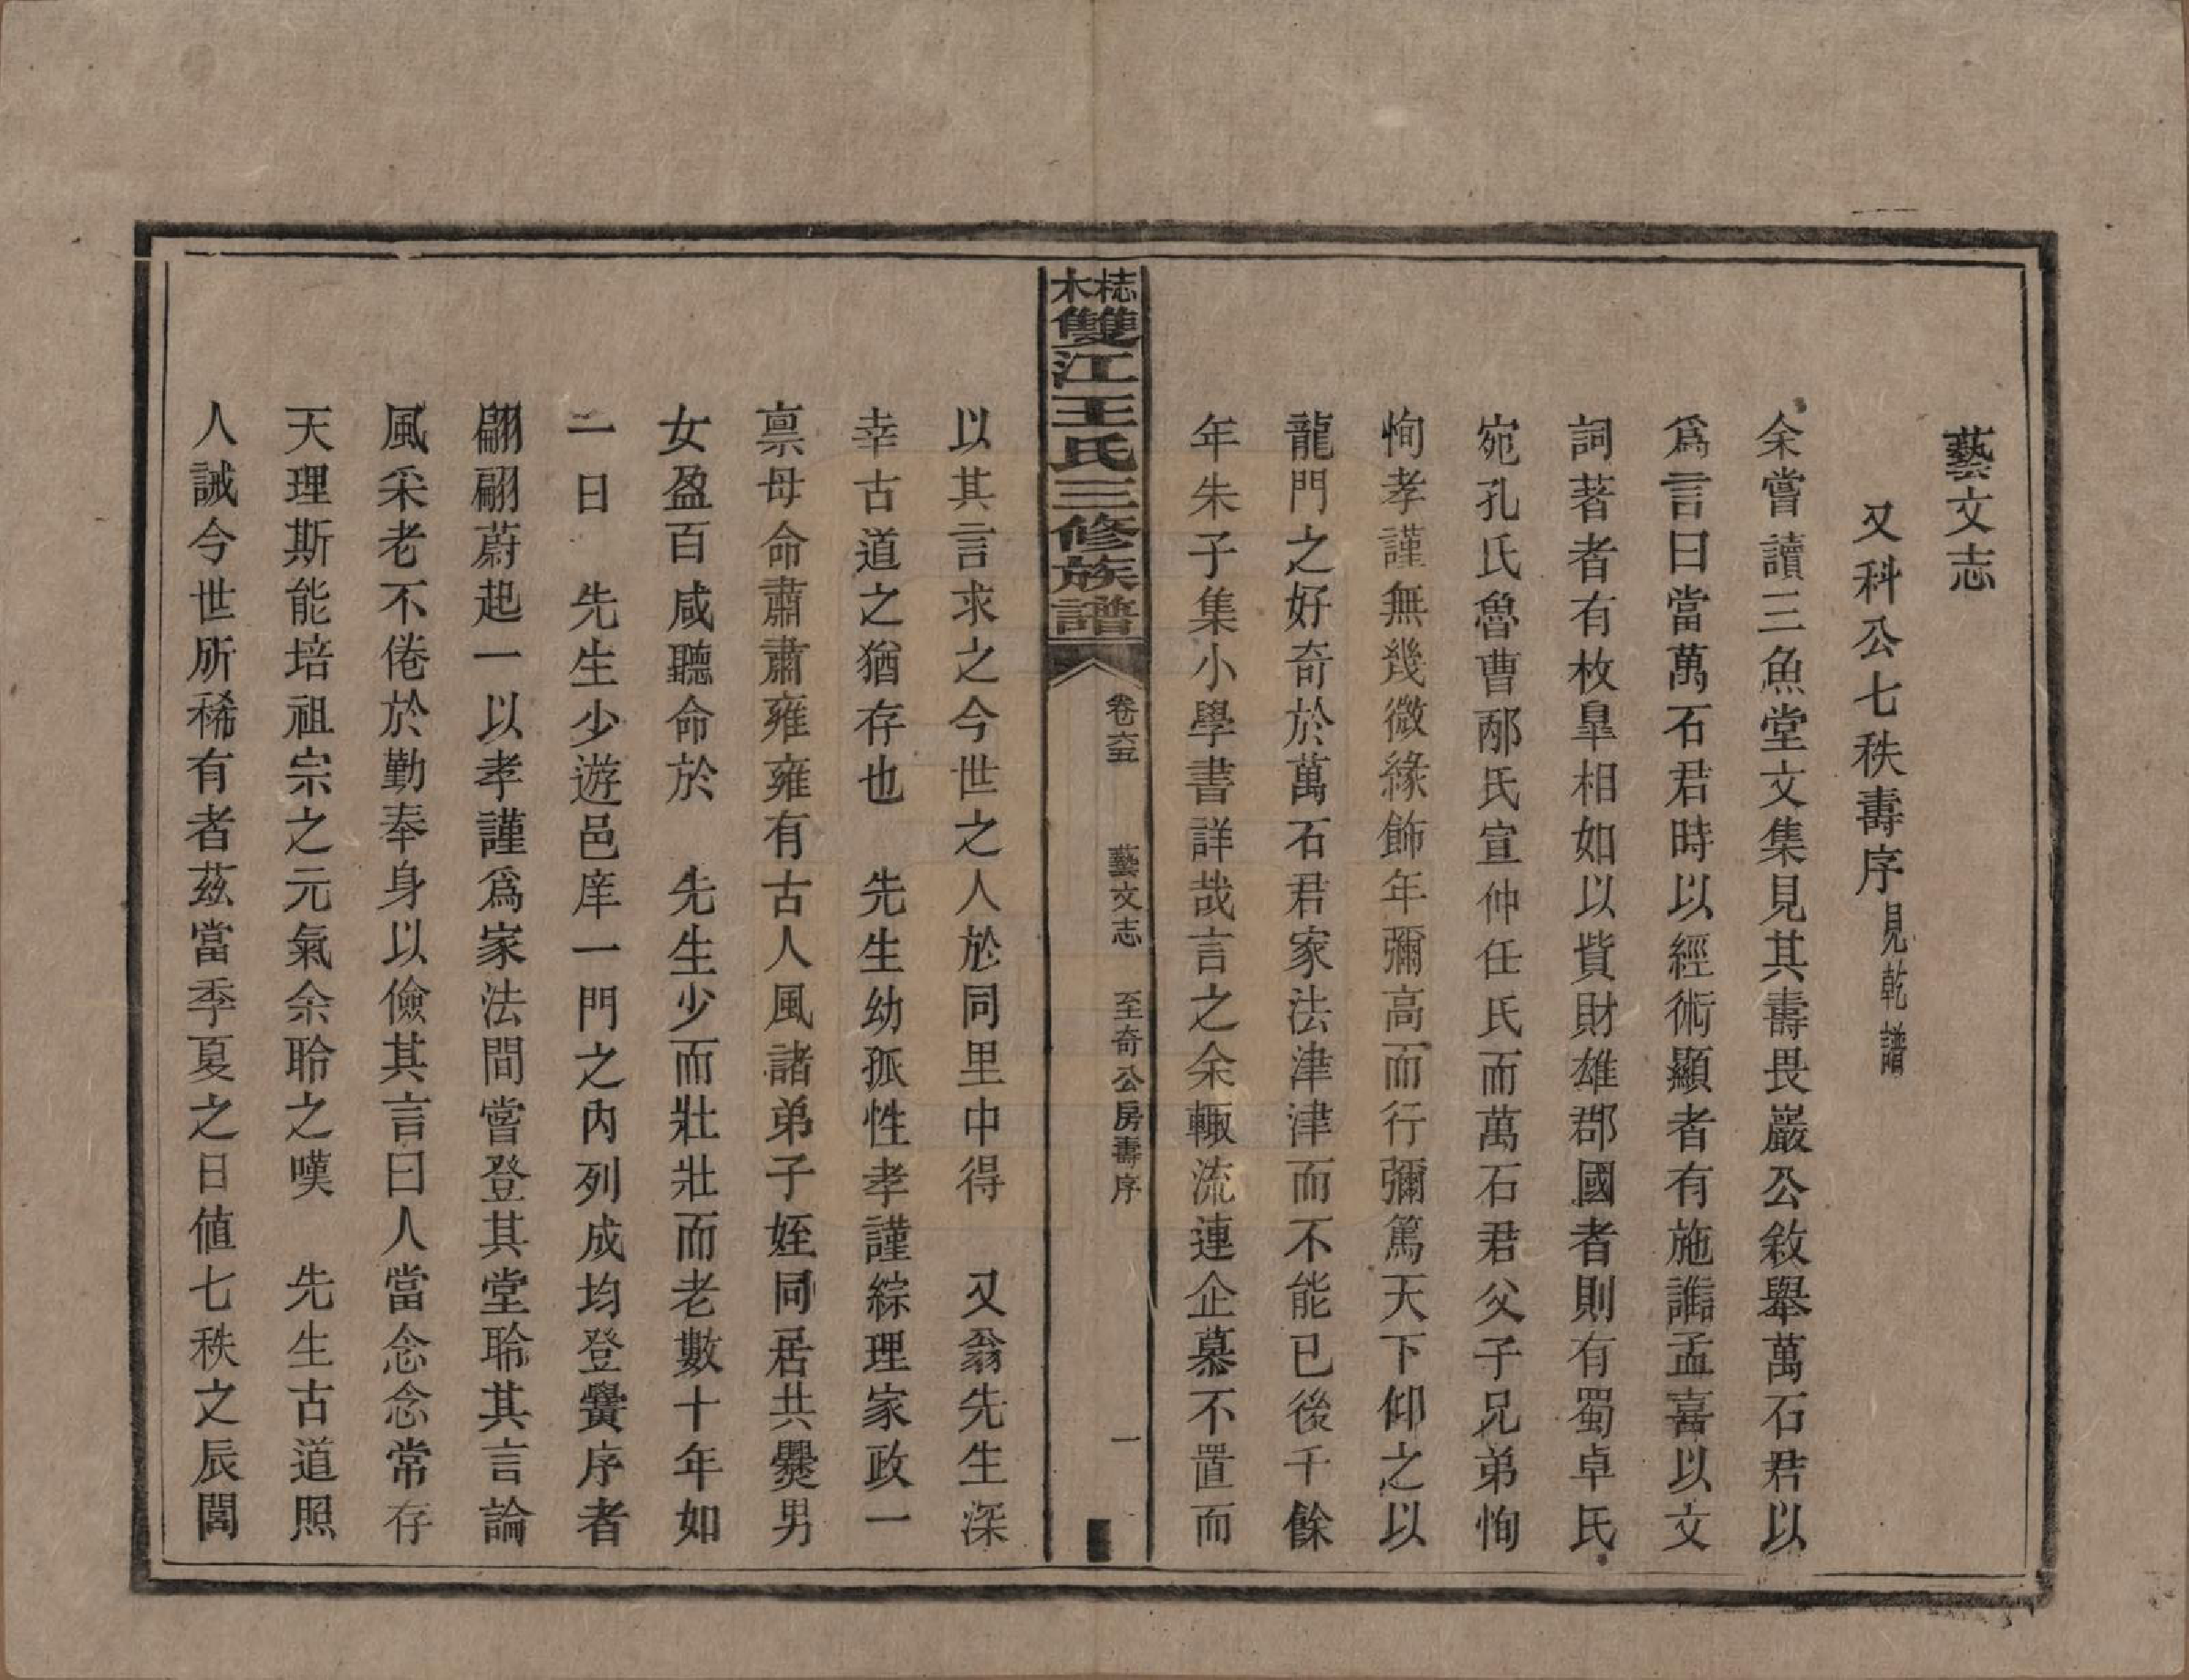 藝文志
又科公七秩壽序見乾譜
余嘗讀三魚堂文集見其壽畏巖公敘舉萬石君以
爲言曰當萬石君時以經術顯者有施讎孟喜以文
詞著者有枚臯相如以貲財雄郡國者則有蜀卓氏
宛孔氏魯曹邴氏宣仲任氏而萬石君父子兄弟恂
恂孝謹無幾微緣飾年彌高而行彌篤天下仰之以
龍門之好奇於萬石君家法津津而不能已後千餘
年朱子集小學書詳哉言之余輙流連企慕不置而
楮木雙江王氏三修族譜 卷六五 藝文志 至奇公房壽序 一
以其言求之今世之人於同里中得 又翁先生深
幸古道之猶存也 先生幼孤性孝謹綜理家政一
禀母命肅肅雍雍有古人風諸弟子姪同居共爨男
女盈百咸聽命於 先生少而壯壯而老數十年如
一日 先生少遊邑庠一門之內列成均登黌序者
翩翩蔚起一以孝謹爲家法間嘗登其堂聆其言論
風采老不倦於勤奉身以儉其言曰人當念念常存
天理斯能培祖宗之元氣余聆之嘆 先生古道照
人誠今世所稀有者茲當季夏之日値七秩之辰閤